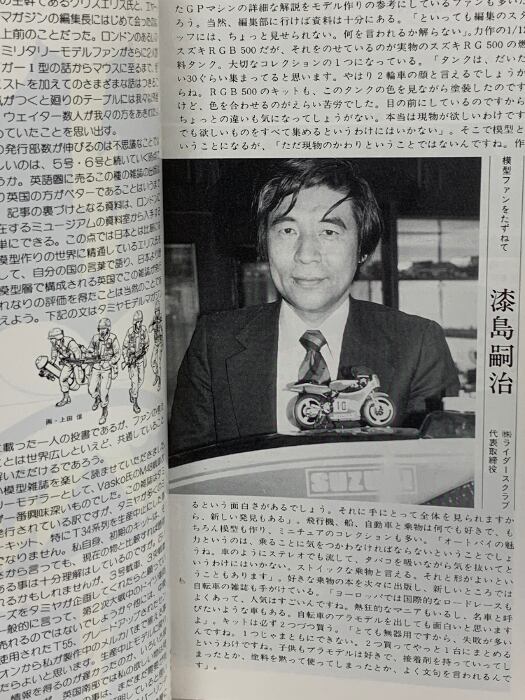 に幹であるクリス・エリス氏と、エアー
マガジンの編集長にはじめて会ったの
上前のことだった。ロンドンのある
ミリタリーモデルファンがさらに2
ガー1型の話からマウスに至るまで、
ストを加えてのさまざまな話は
がつくと廻りのテーブルには我々
、ウェイター数人が我々の方を
っていたことを思い出す。
の発行部数が伸びるのは不思議なこと
しいのは、5号・6号と続いていく
うか。英語圏に売るこの種の雑誌の
り英国の方がベターであることは
記事の裏づけとなる資料は、ロンドン
在するミュージアムの資料室から入手
単にできる。この点では日本とは比較に
模型作りの世界に精通しているエリス
して、自分の国の言葉で語り、日本より
模型層で構成される英国でこの雑誌が
れなりの評価を得たことは当然のこと
えよう。下記の文はタミヤモデルマガジン
画・上田 信
に載った一人の投書であるが、ファンの
ことは世界広しといえど、共通している
解いただけるであろう。
い模型雑誌を楽しく読ませていただき
リーモデラーとして、Vasko氏のM48戦車
が一番興味深いものでした。この雑誌は
発行されている訳ですが、タミヤが
ーキット、特にT34系列を生産中止に
でなりません。私自身、初期のキットは
さから言っても、現在の物と比べれば
ある事は十分理解はしているのですが、
れるかもしれませんが、3号戦車、
ーズをタミヤが企画してくれたらと
一般的に言って、第2次大戦中のドイツ
売れるのではないでしょうか
使用されたT55、グレードアップされる
オンから私が製作中のスカルパまで揃える
たらよいと思います。生産中止モデルに
情報を得るのが遅かったのか、いろいろ
たGPマシンの詳細な解説をモデル作りの参考にしているファンも多い
ろう。当然、編集部に行けば資料は十分にある。「といっても編集のスタ
ッフには、ちょっと見せられない。何を言われるか解らない」。力作の1/12
スズキRGB500だが、それをのせているのが実物のスズキRG500の燃
料タンク。大切なコレクションの1つになっている。「タンクは、だいた
い30ぐらい集まってると思います。やはり2輪車の顔と言えるでしょうか
らね。RGB500のキットも、このタンクの色を見ながら塗装したのです
けど、色を合わせるのがえらい苦労でした。目の前にしているのですから
ちょっとの違いも気になってしょうがない。本当は現物が欲しいわけです
でも欲しいものをすべて集めるというわけにはいかない」。そこで模型と
いうことになるが、「ただ現物のかわりということではないんですね。作
模型ファンをたずねて
漆島嗣治
㈱ライダースクラブ
代表取締役
10
SUZUKI
るという面白さがあるでしょう。それに手にとって全体を見られますか
ら、新しい発見もある」。飛行機、船、自動車と乗物は何でも好きで、も
ちろん模型も作り、ミニチュアのコレクションも多い。「オートバイの魅
力というのは、乗ることに気をつかわなければならないということでしょ
うね。車のようにステレオでも流して、タバコを吸いながら気を抜いてと
いうわけにはいかない。ストイックな乗物と言える。それと形がよいとい
うこともあります」。好きな乗物の本を次々に出版し、新しいところでは
自転車の雑誌も手がけている。「ヨーロッパでは国際的なロードレースも
よくあって、人気はすごいんですね。熱狂的なマニアもいるし、名車と呼
びたいような車もある。自転車のプラモデルを出しても面白いと思います
よ」。キットは必ず2つずつ買う。「とても無器用ですから、失敗が多い
んですね。1つじゃまともにできない。2つ買ってやっと1台にまとめる
というわけですね。子供もプラモデルは好きで、接着剤を持っていってし
まったとか、塗料を黙って使ってしまったとか、よく文句を言われるんで
す」。